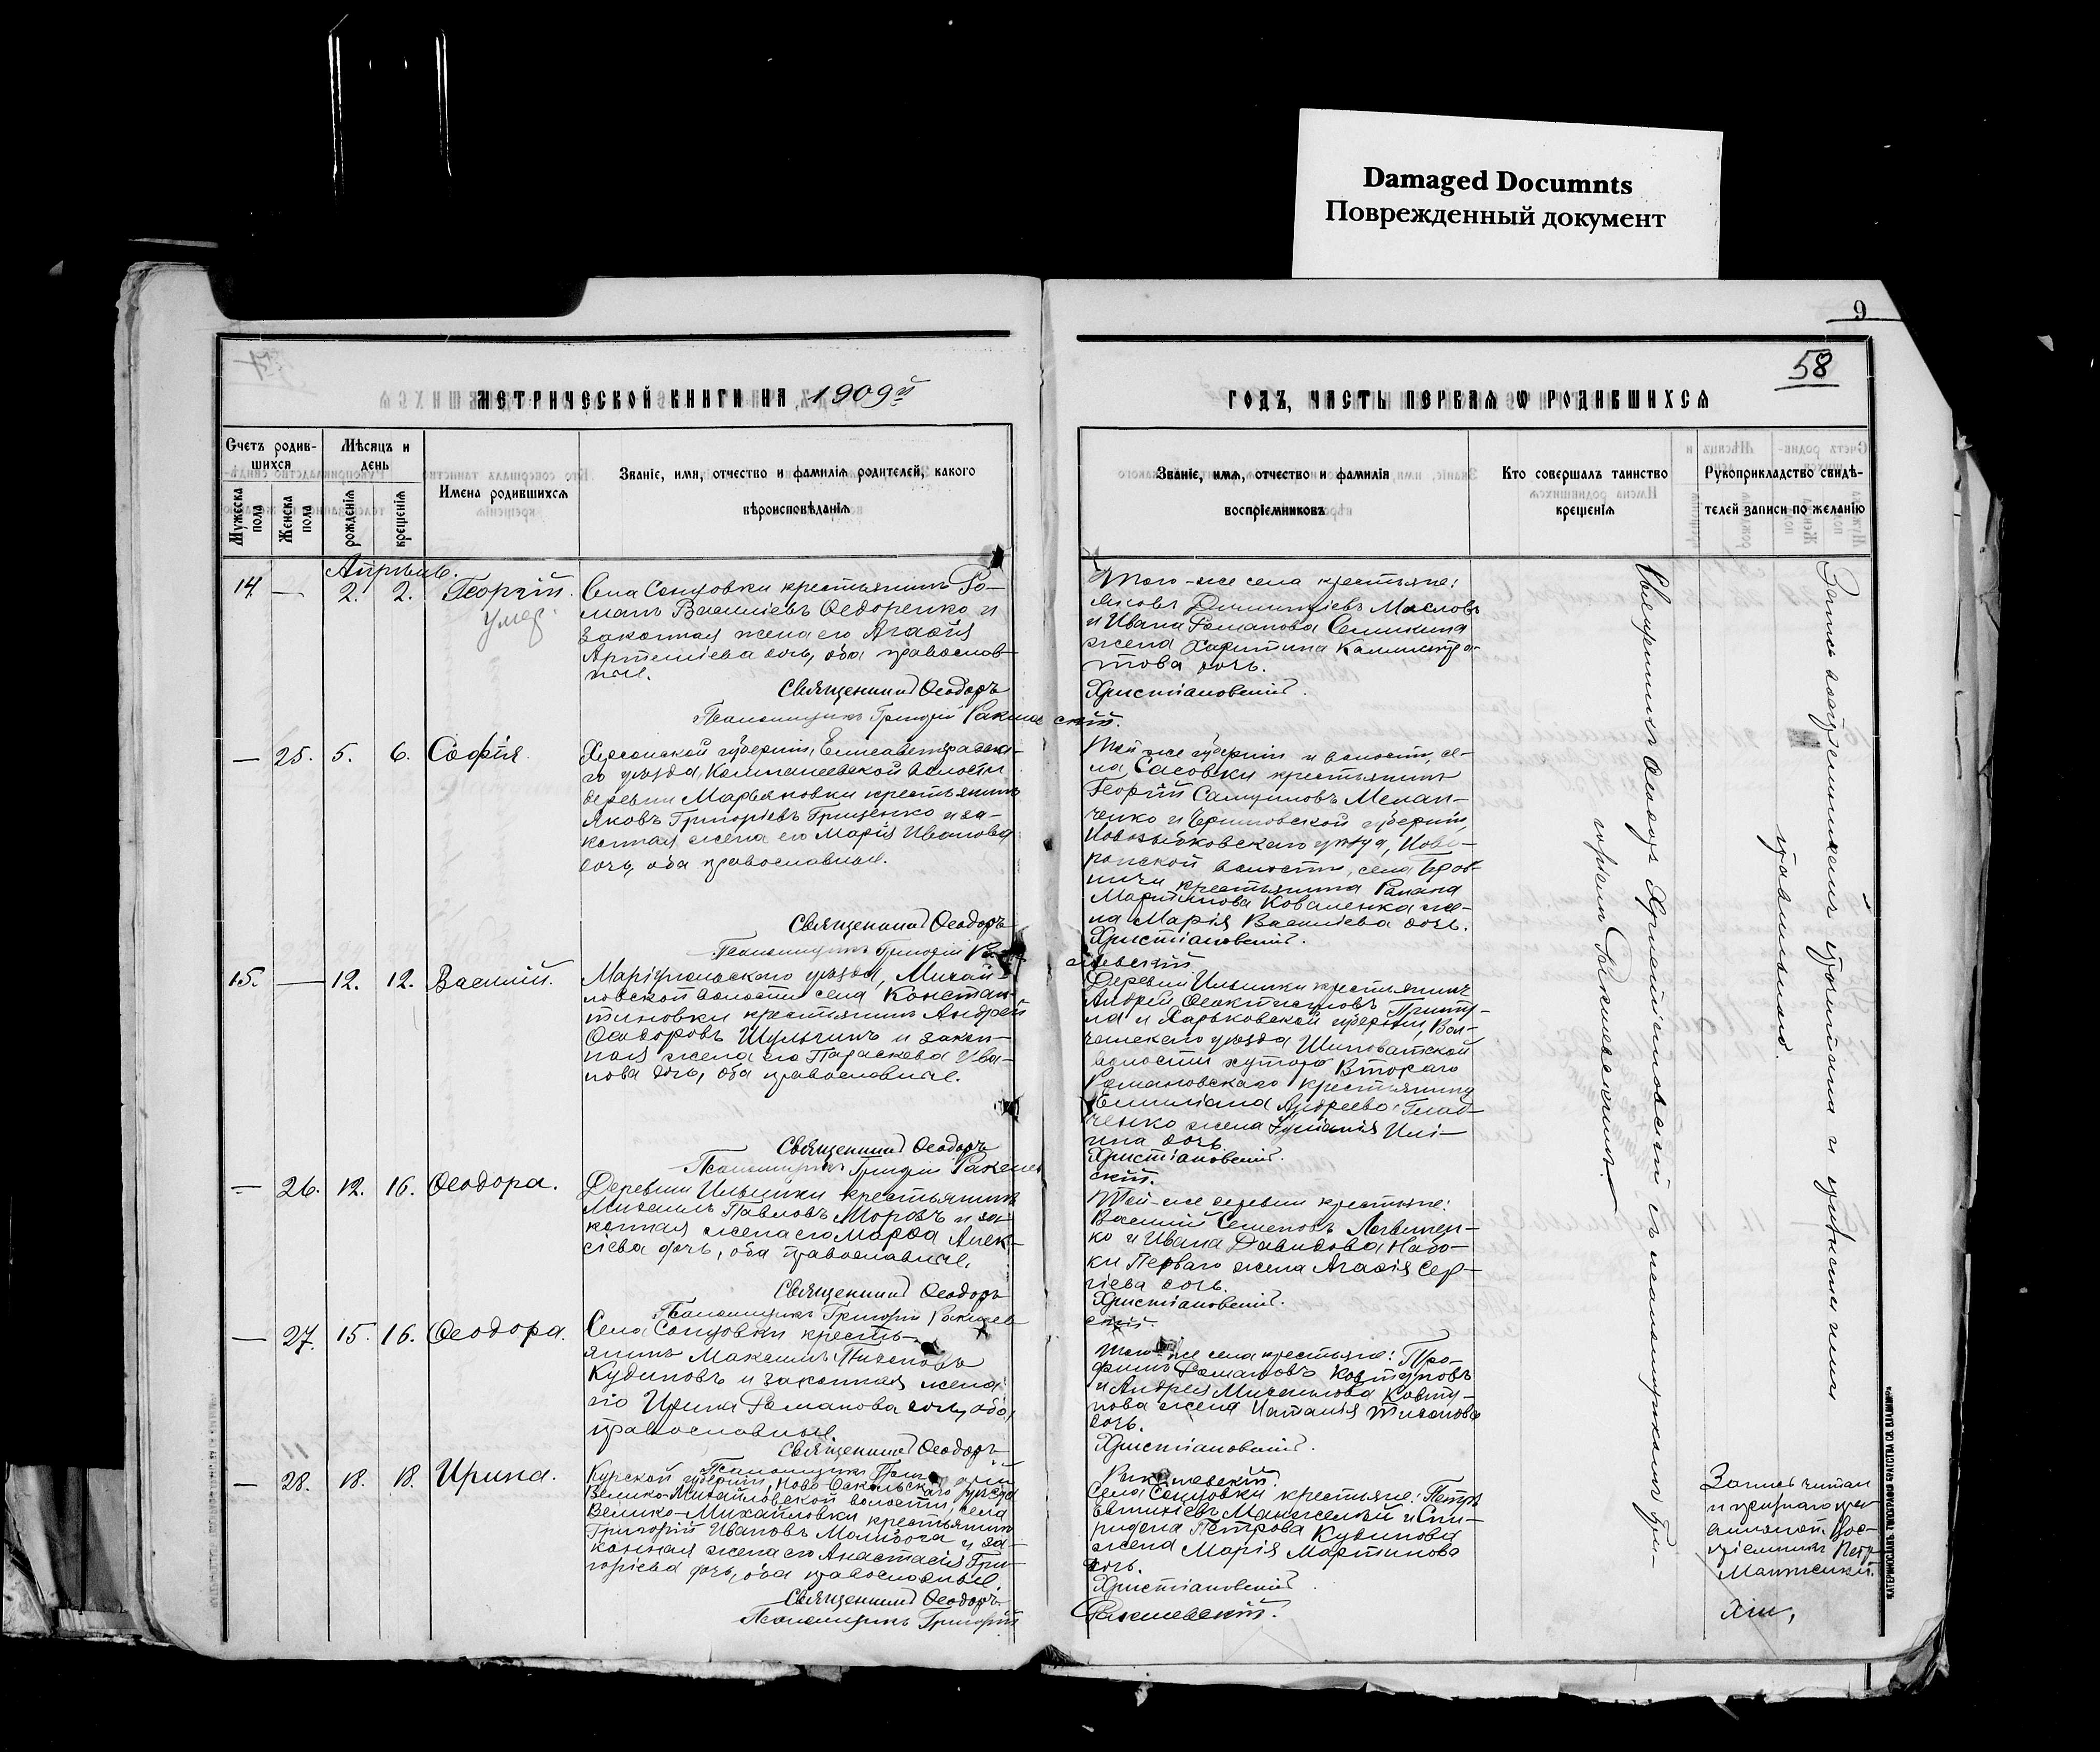 Damaged Documnts
Поврежденный документ
9
58
МЕТРИЧЕСКОЙ КНИГИ НА 1909й
ГОДЪ, ЧАСТЬ ПЕРВАЯ Ѡ РОДИВШИХСЯ
Счетъ родив-
шихся
Мѣсяцъ и
день
Мужеска
пола
Женска
пола
рожденія
крещенія
Имена родившихся
Званіе, имя, отчество и фамилія родителей, какого
вѣроисповѣданія
Званіе, имя, отчество и фамилія
воспріемниковъ
Кто совершалъ таинство
крещенія
Рукоприкладство свидѣ-
телей записи по желанію
Апрѣль.
14. — 2. 2. Георгій.
умер.
Села Сонцовки крестьянинъ Ро-
манъ Васильевъ Ѳедоренко и
законная жена его Агаѳія
Артеміева дочь, оба православ-
ные.
Священникъ Ѳеодоръ
Псаломщикъ Григорій Ракшевскій.
Того-же села крестьяне:
Яковъ Димитріевъ Масловъ
и Ивана Романова Семикина
жена Харитина Калистра-
това дочь.
Христіановскій.
— 25. 5. 6. Софія.
Херсонской губерніи, Елисаветградска-
го уѣзда, Компанеевской волости
деревни Марьяновки крестьянинъ
Яковъ Григоріевъ Гриценко и за-
конная жена его Марія Иванова
дочь, оба православные.
Священникъ Ѳеодоръ
Псаломщикъ Григорій
Той же губерніи и волости, се-
ла Сасовки крестьянинъ
Георгій
ченко и Черниговской губерніи,
Новозыбковскаго уѣзда, Ново-
ропской волости, села Бров-
ничи крестьянина Романа
Мартинова Коваленка же-
на Марія Васильева дочь.
Христіановскій.
15. — 12. 12. Василій.
Маріупольскаго уѣзда, Михай-
ловской волости села Констан-
тиновки крестьянинъ Андрей
Ѳеодоровъ Шульгинъ и закон-
ная жена его Параскева Ива-
нова дочь, оба православные.
Священникъ Ѳеодоръ
Псаломщикъ Григорій Ракшев
Деревни Ильинки крестьянинъ
Андрей Ѳеоктистовъ Приту-
ла и Харьковской губерніи, Вол-
чанскаго уѣзда Шиповатской
волости хутора Второго
Романовскаго крестьянина
Емиліана Андреева Глад-
ченко жена Іуліанія Илі-
ина дочь.
Христіановскій.
скій.
— 26. 12. 16. Ѳеодора.
Деревни Ильинки крестьянинъ
Михаилъ Павловъ Морозъ и за-
конная жена его Марѳа Алек-
сіева дочь, оба православные.
Священникъ Ѳеодоръ
Псаломщикъ Григорій Ракшев
Той-же деревни крестьяне:
Василій Семеновъ Логвинен-
ко и Ивана Давидова Набо-
ки Перваго жена Агаѳія Сер-
гіева дочь.
Христіановскій.
скій.
— 27. 15. 16. Ѳеодора.
Села Сонцовки кресть-
янинъ Максимъ Тихоновъ
Кудиновъ и законная жена
его Ирина Романова дочь, оба
православные.
Священникъ Ѳеодоръ
Псаломщикъ Григорій
Того-же села крестьяне: Тро-
фимъ Романовъ Ковтуновъ
и Андрея Михайлова Ковту-
нова жена Наталія Тихонова
дочь.
Христіановскій.
Ракшевскій.
— 28. 18. 18. Ирина.
Курской губерніи, Ново-Оскольскаго уѣзда
Велико-Михайловской волости, села
Велико-Михайловки крестьянинъ
Григорій Ивановъ и за-
конная жена его Анастасія Гри-
горіева дочь, оба православные.
Священникъ Ѳеодоръ
Псаломщикъ Григорій
Села Сонцовки крестьяне: Петръ
Евтихіевъ и Спи-
ридона Петрова Кудинова
жена Марія Мартинова
дочь.
Христіановскій
Ракшевскій.
Священникъ Ѳеодоръ Христіановскій съ псаломщикомъ Гри-
горіемъ Ракшевскимъ.
Запись воспріемниками прочитана и признана
правильною.
Запись читал
и
Вос-
пріемникъ Петр
ЕКАТЕРИНОСЛАВЪ. ТИПОГРАФІЯ БРАТСТВА СВ. ВЛАДИМІРА